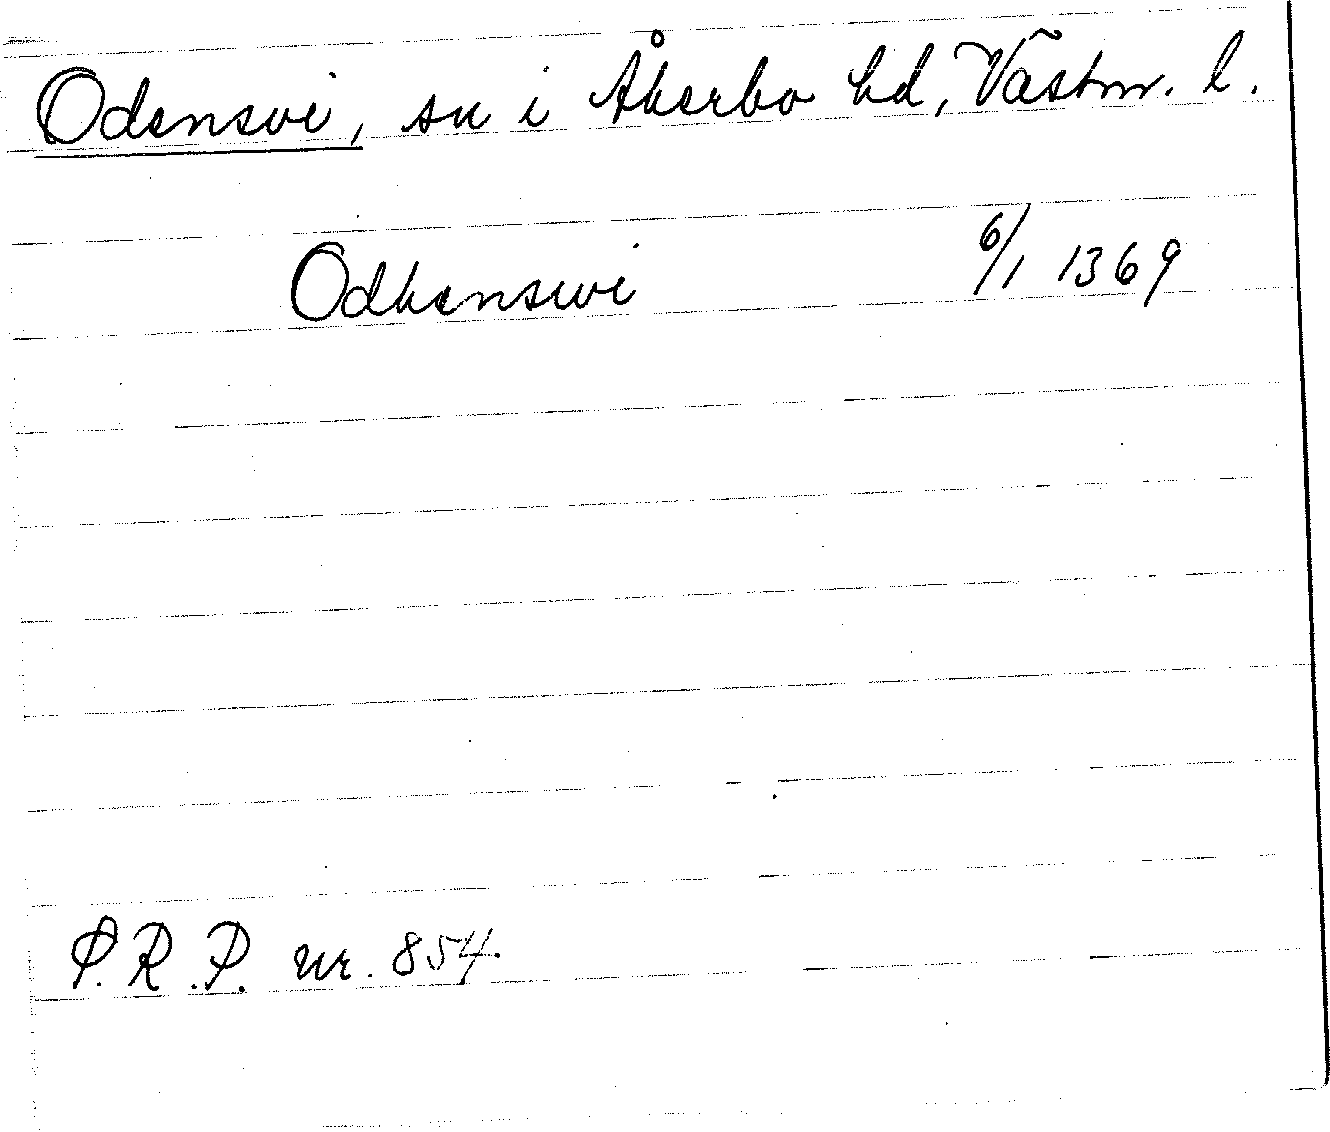 Odensvi, sn i Åkerbo hd, Västm. l.
Odhenswi 6/1 1369
P.R.P. nr. 854.